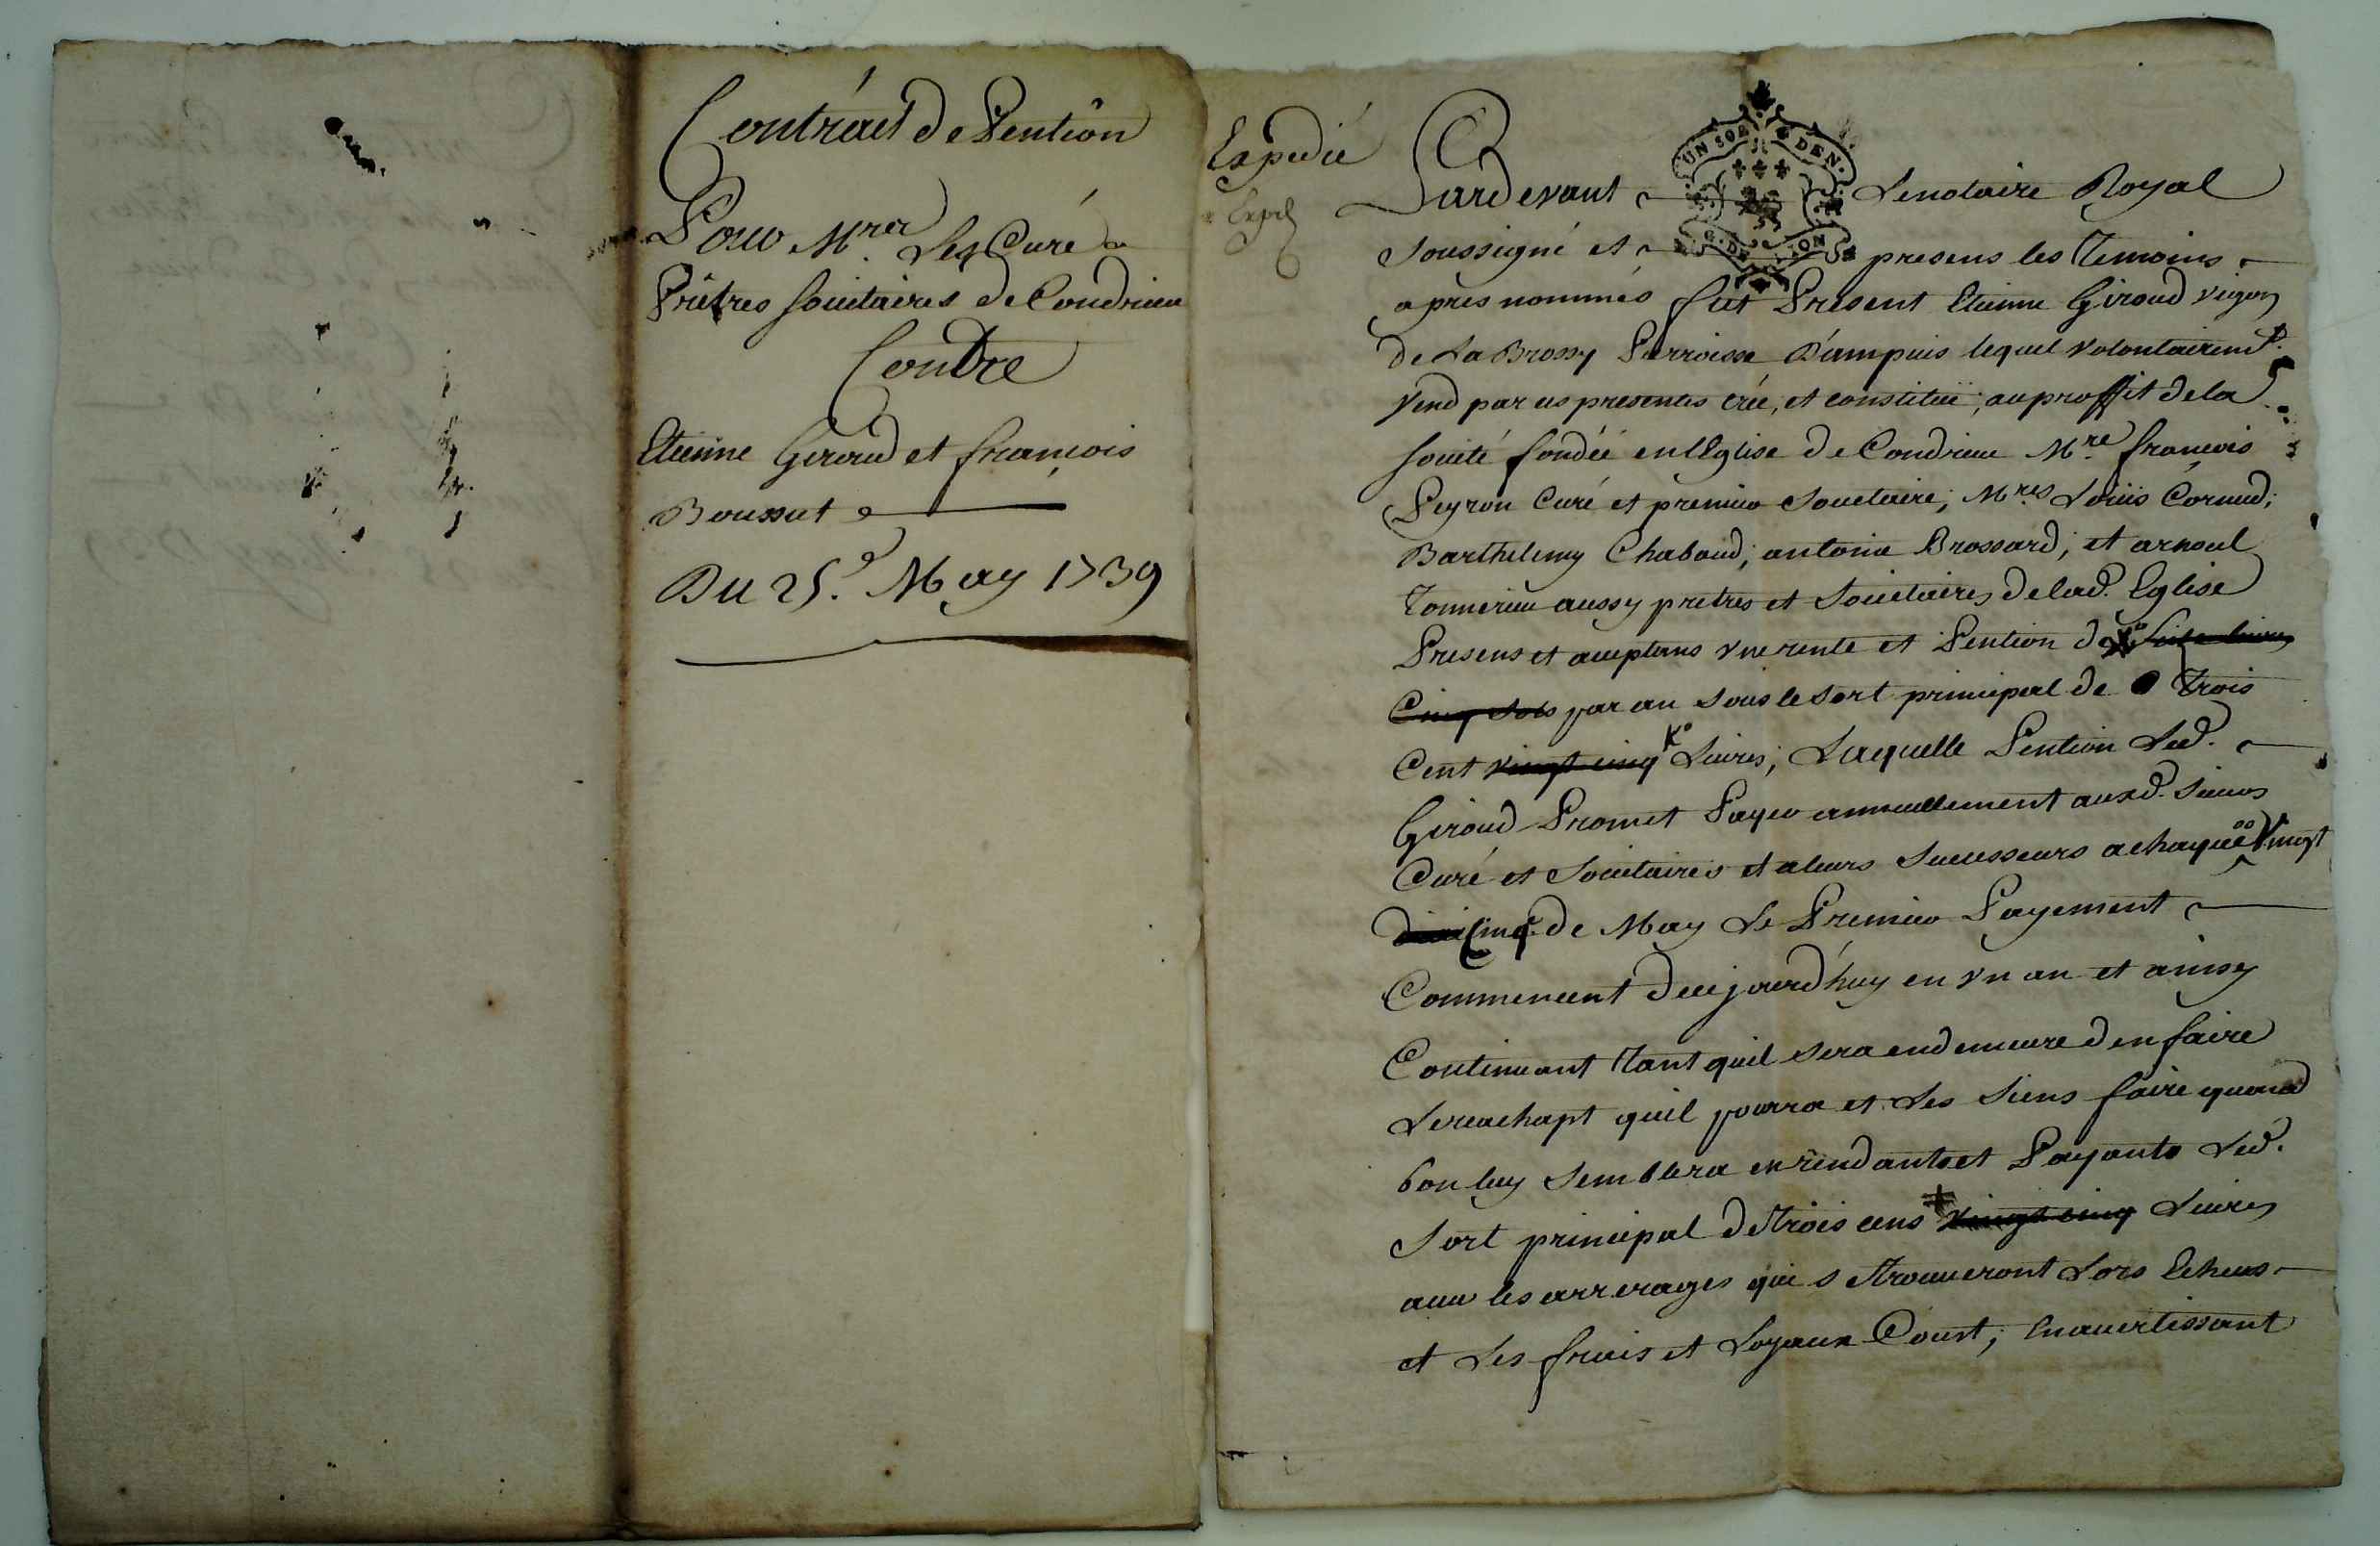 Contract de Pention
Pour Mres Les Curé
Prêtres Societaires de Condrieu
Contre
Etienne Giroud et francois
Boussut
Du 25e May 1739
Expedié
Expé
UN SOL 4 DEN.
G. DE LION
Pardevant Le notaire Royal
Soussigné et presens les Temoins
apres nommés fut Present Etienne Giroud vigon
de La Brossy Parroisse D'ampuis lequel volontairemt.
vend par ces presentes crée, et constitüe, au proffit de la
Societé fondée en lEglise de Condrieu Mre. francois
Peyron Curé et premier Societaire; Mres Loüis Cornud;
Barthelemy Chaboud; antoine Brossard; et arnoul
Tonnerieu aussy pretres et Societaires de lad. Eglise
Presens et aceptans vne rente et Pention de Seize livres
Cinq sols par an sous le sort principal de Trois
Cent vingt cinq Livres; Laquelle Pention Led.
Giroud Promet Payer annuellement auxd. Sieurs
Curé et Societaires et a leurs Successeurs a chaque Vingt
Cinq de May Le Premier Payement
Commencent decejourd'huy en vn an et ainsy
Continuant Tant quil sera en demeure den faire
Le reachapt quil pourra et Les Siens faire quand
bon luy Semblera en rendants et Payants Led.
Sort principal de Trois cens vingt cinq Livres
auec les arrerages qui s etrouueront Lors Echeus
et Les frais et Loyaux Coust; En auertissant